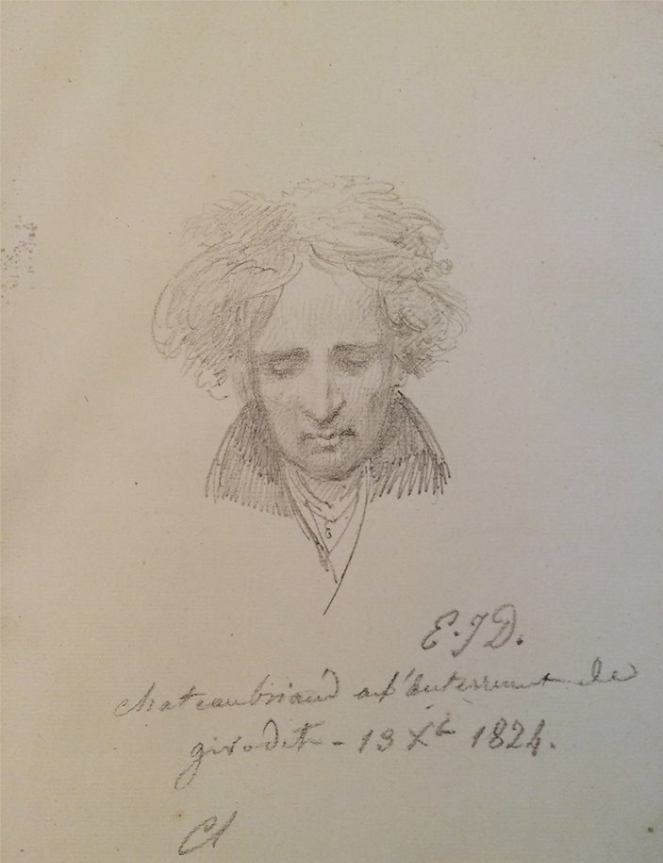 E. J D.
chateaubriand a l'enterrement de
girodet - 13 Xbre 1824.